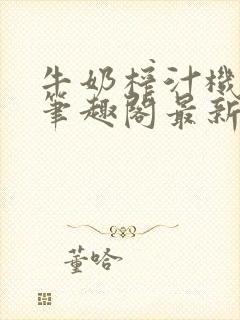 牛奶榨汁機
筆趣閣最新
董哈